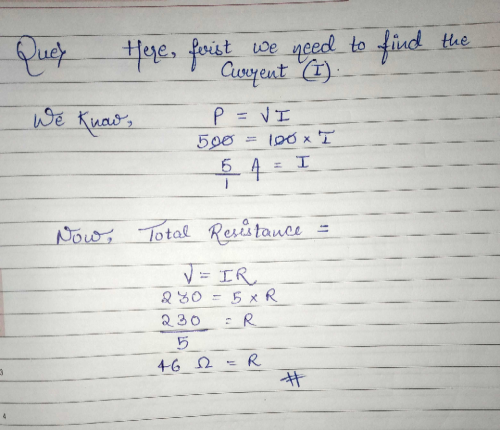 Ques Here, first we need to find the
Current (I).
We Know, P = VI
500 = 100 × I
5/1 A = I
Now, Total Resistance =
V = IR
230 = 5 × R
230/5 = R
46 Ω = R
#